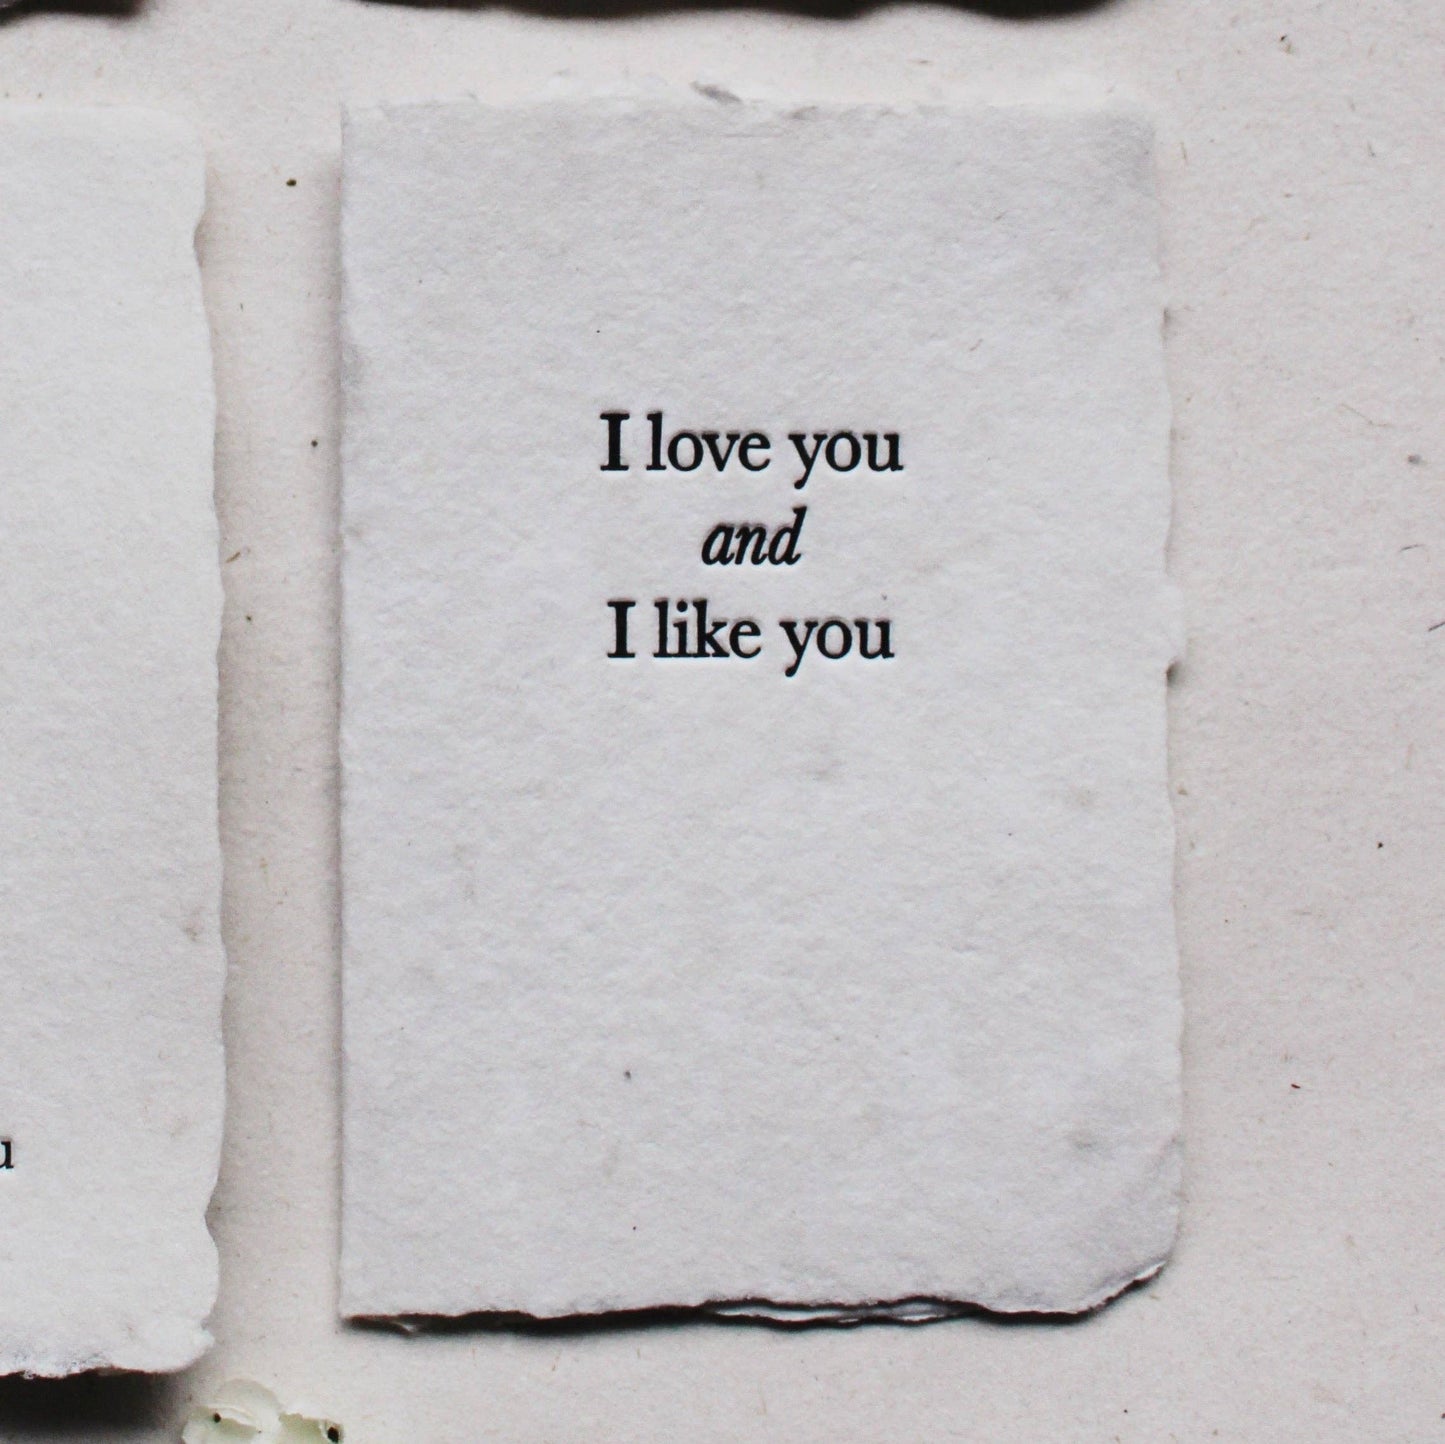 I love you
and
I like you
u